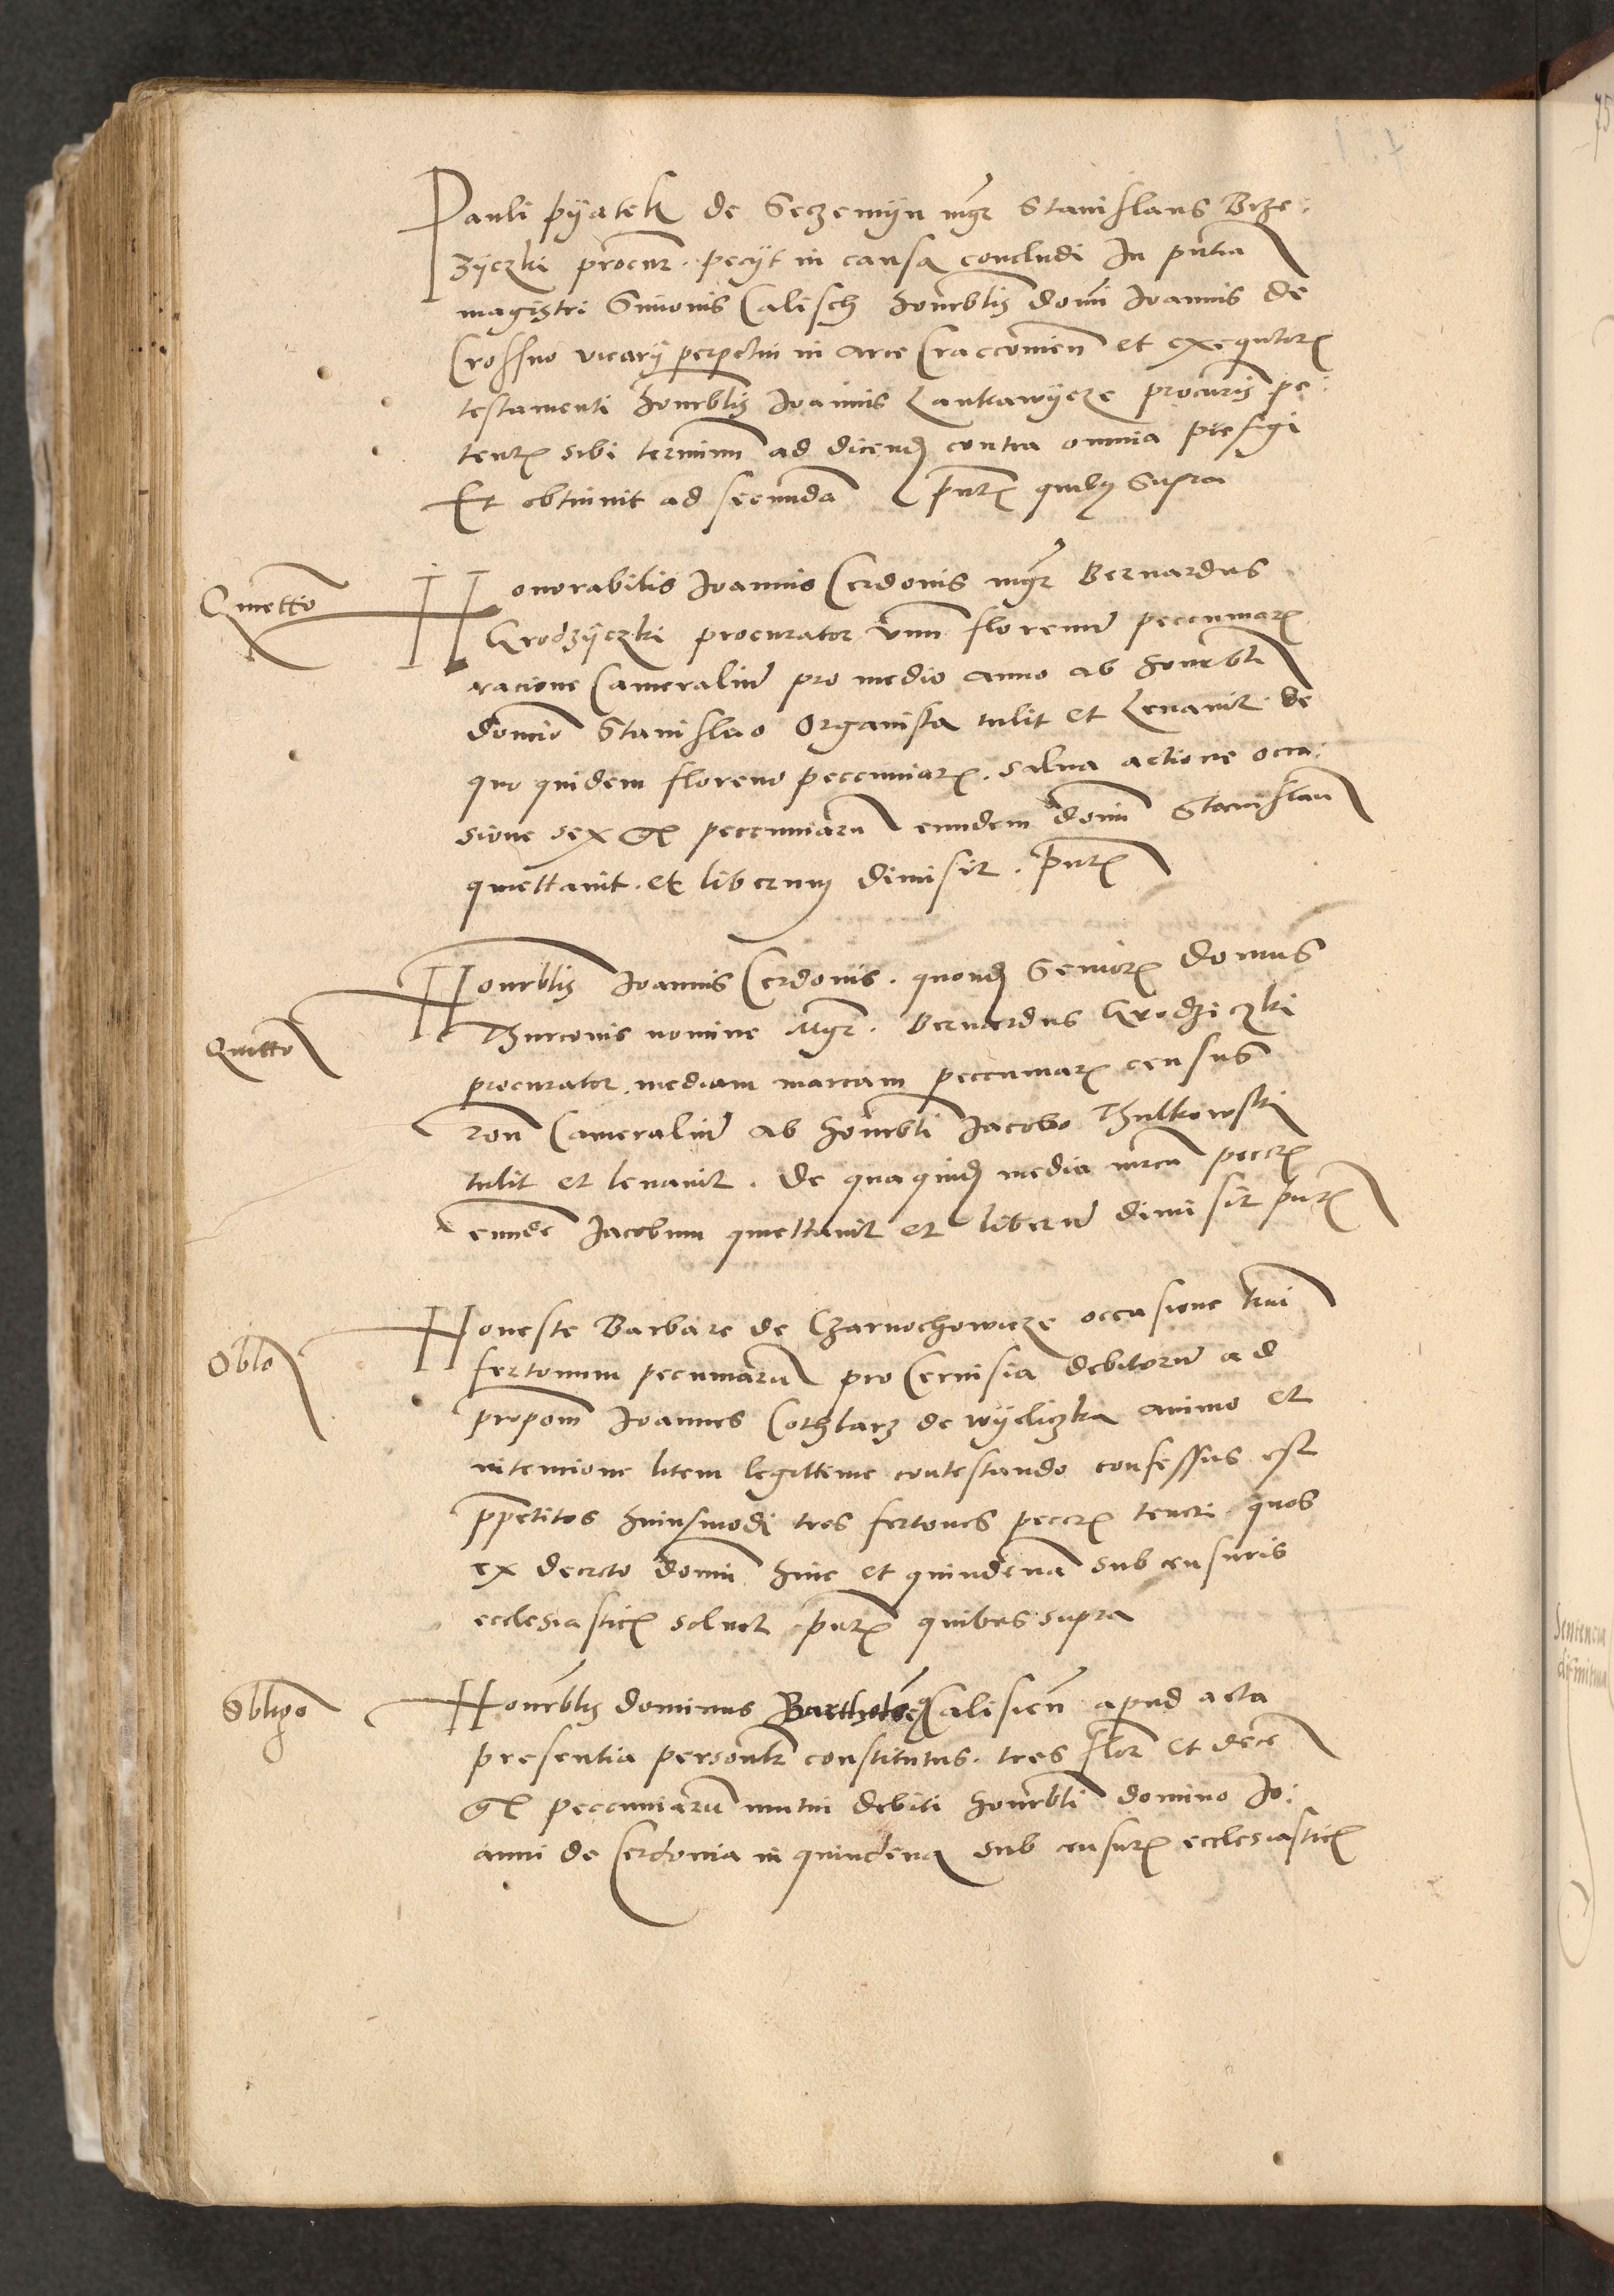 Pauli pyatek de Seczemyn mgr Stanislaus Brze:
zyczki procur. pecyt in causa concludi In pntia
magistri Simonis Calisch honrblis domi Ioannis de
Crossno vicarij perpetui in arce Craccovien et exequtor
testamenti honrblis Ioannis procuris pe:
tentis sibi terminum ad dicend contra omnia prefigi
Et obtinuit ad secunda pntr quibus Supra
Quietto
Honorabilis Ioannis Cerdonis mgr Bernardus
Grodzyczki procurator vnum florenum peccuniar
racione Cameralium pro medio anno ab honrbli
domino Stanislao Organista tulit et Levavit. de
quo quidem floreno peccuniar. salua actione occa:
sione sex gr peccuniaru eundem domi Stanislau
quiettavit. et liberum dimisit. pntr
Honrblis Ioannis Cerdonis. quond Senior Domus
Quitto
Thurconis nomine Mgr. Bernardus Grodziczki
procurator mediam marcam peccuniar census
ron Cameralium ab honrbli Iacobo Thulkowski
tulit et levavit. de qua quid media mrca peccr
eunde Iacobum quiettavit et liberum dimisit pntr
Honeste Barbare de Czarnochowicze occasione trium
Oblo
fertonum pecuniaru pro Cervisia debitorum ad
propom Ioannes Cothlarz de wyeliczka animo et
intencione litem legittime contestando confessus est
ppetitos huiusmodi tres fertones peccr teneri quos
ex decreto domini hinc et quindena sub censuris
ecclesiasticis solvet pntr quibus supra
Obligo
Honrblis dominus Bartholo Calisien apud acta
presentia personlr constitutus. tres flor et dece
gr peccuniarum mutui debiti honrbli domino Io:
anni de Cerdonia in quindena sub censuris ecclesiasticis
75
Sentencia
diffinitiva